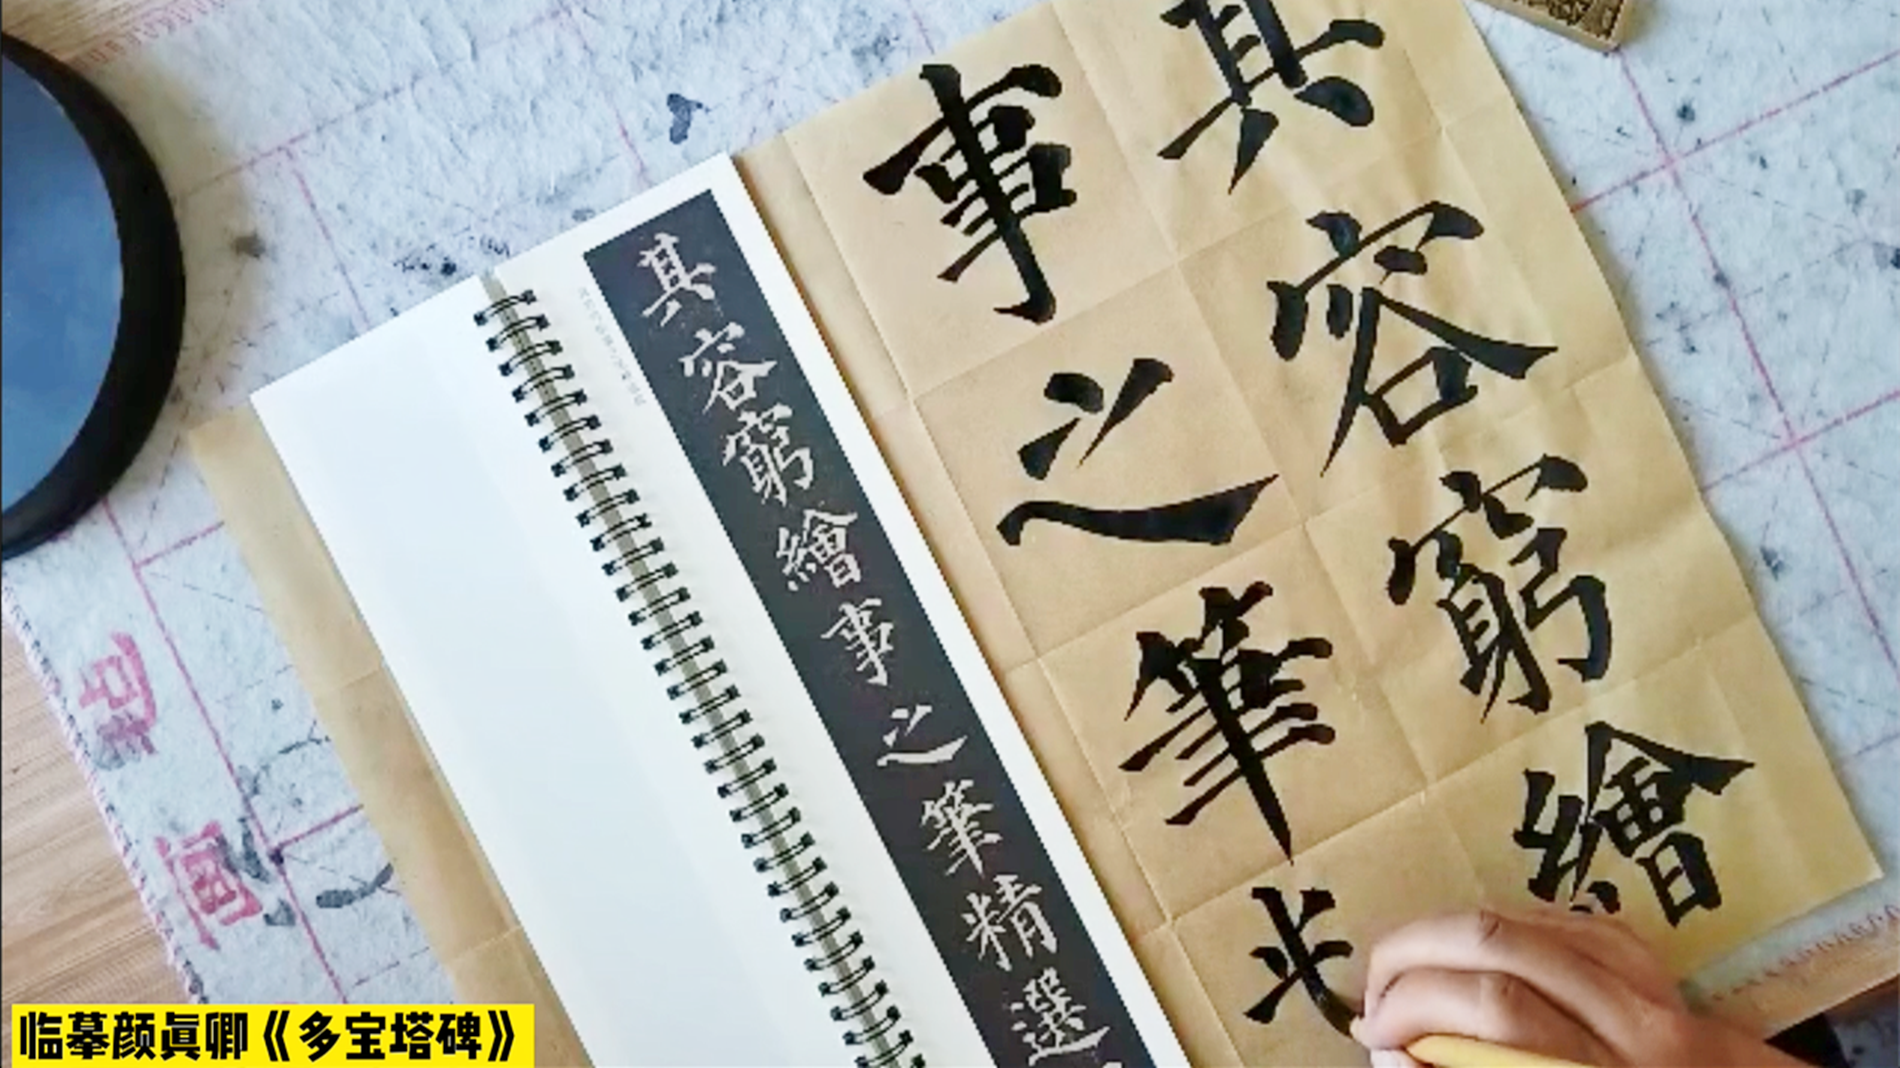 其容窮繪
事之筆
其容窮繪事之筆精選
临摹颜真卿《多宝塔碑》